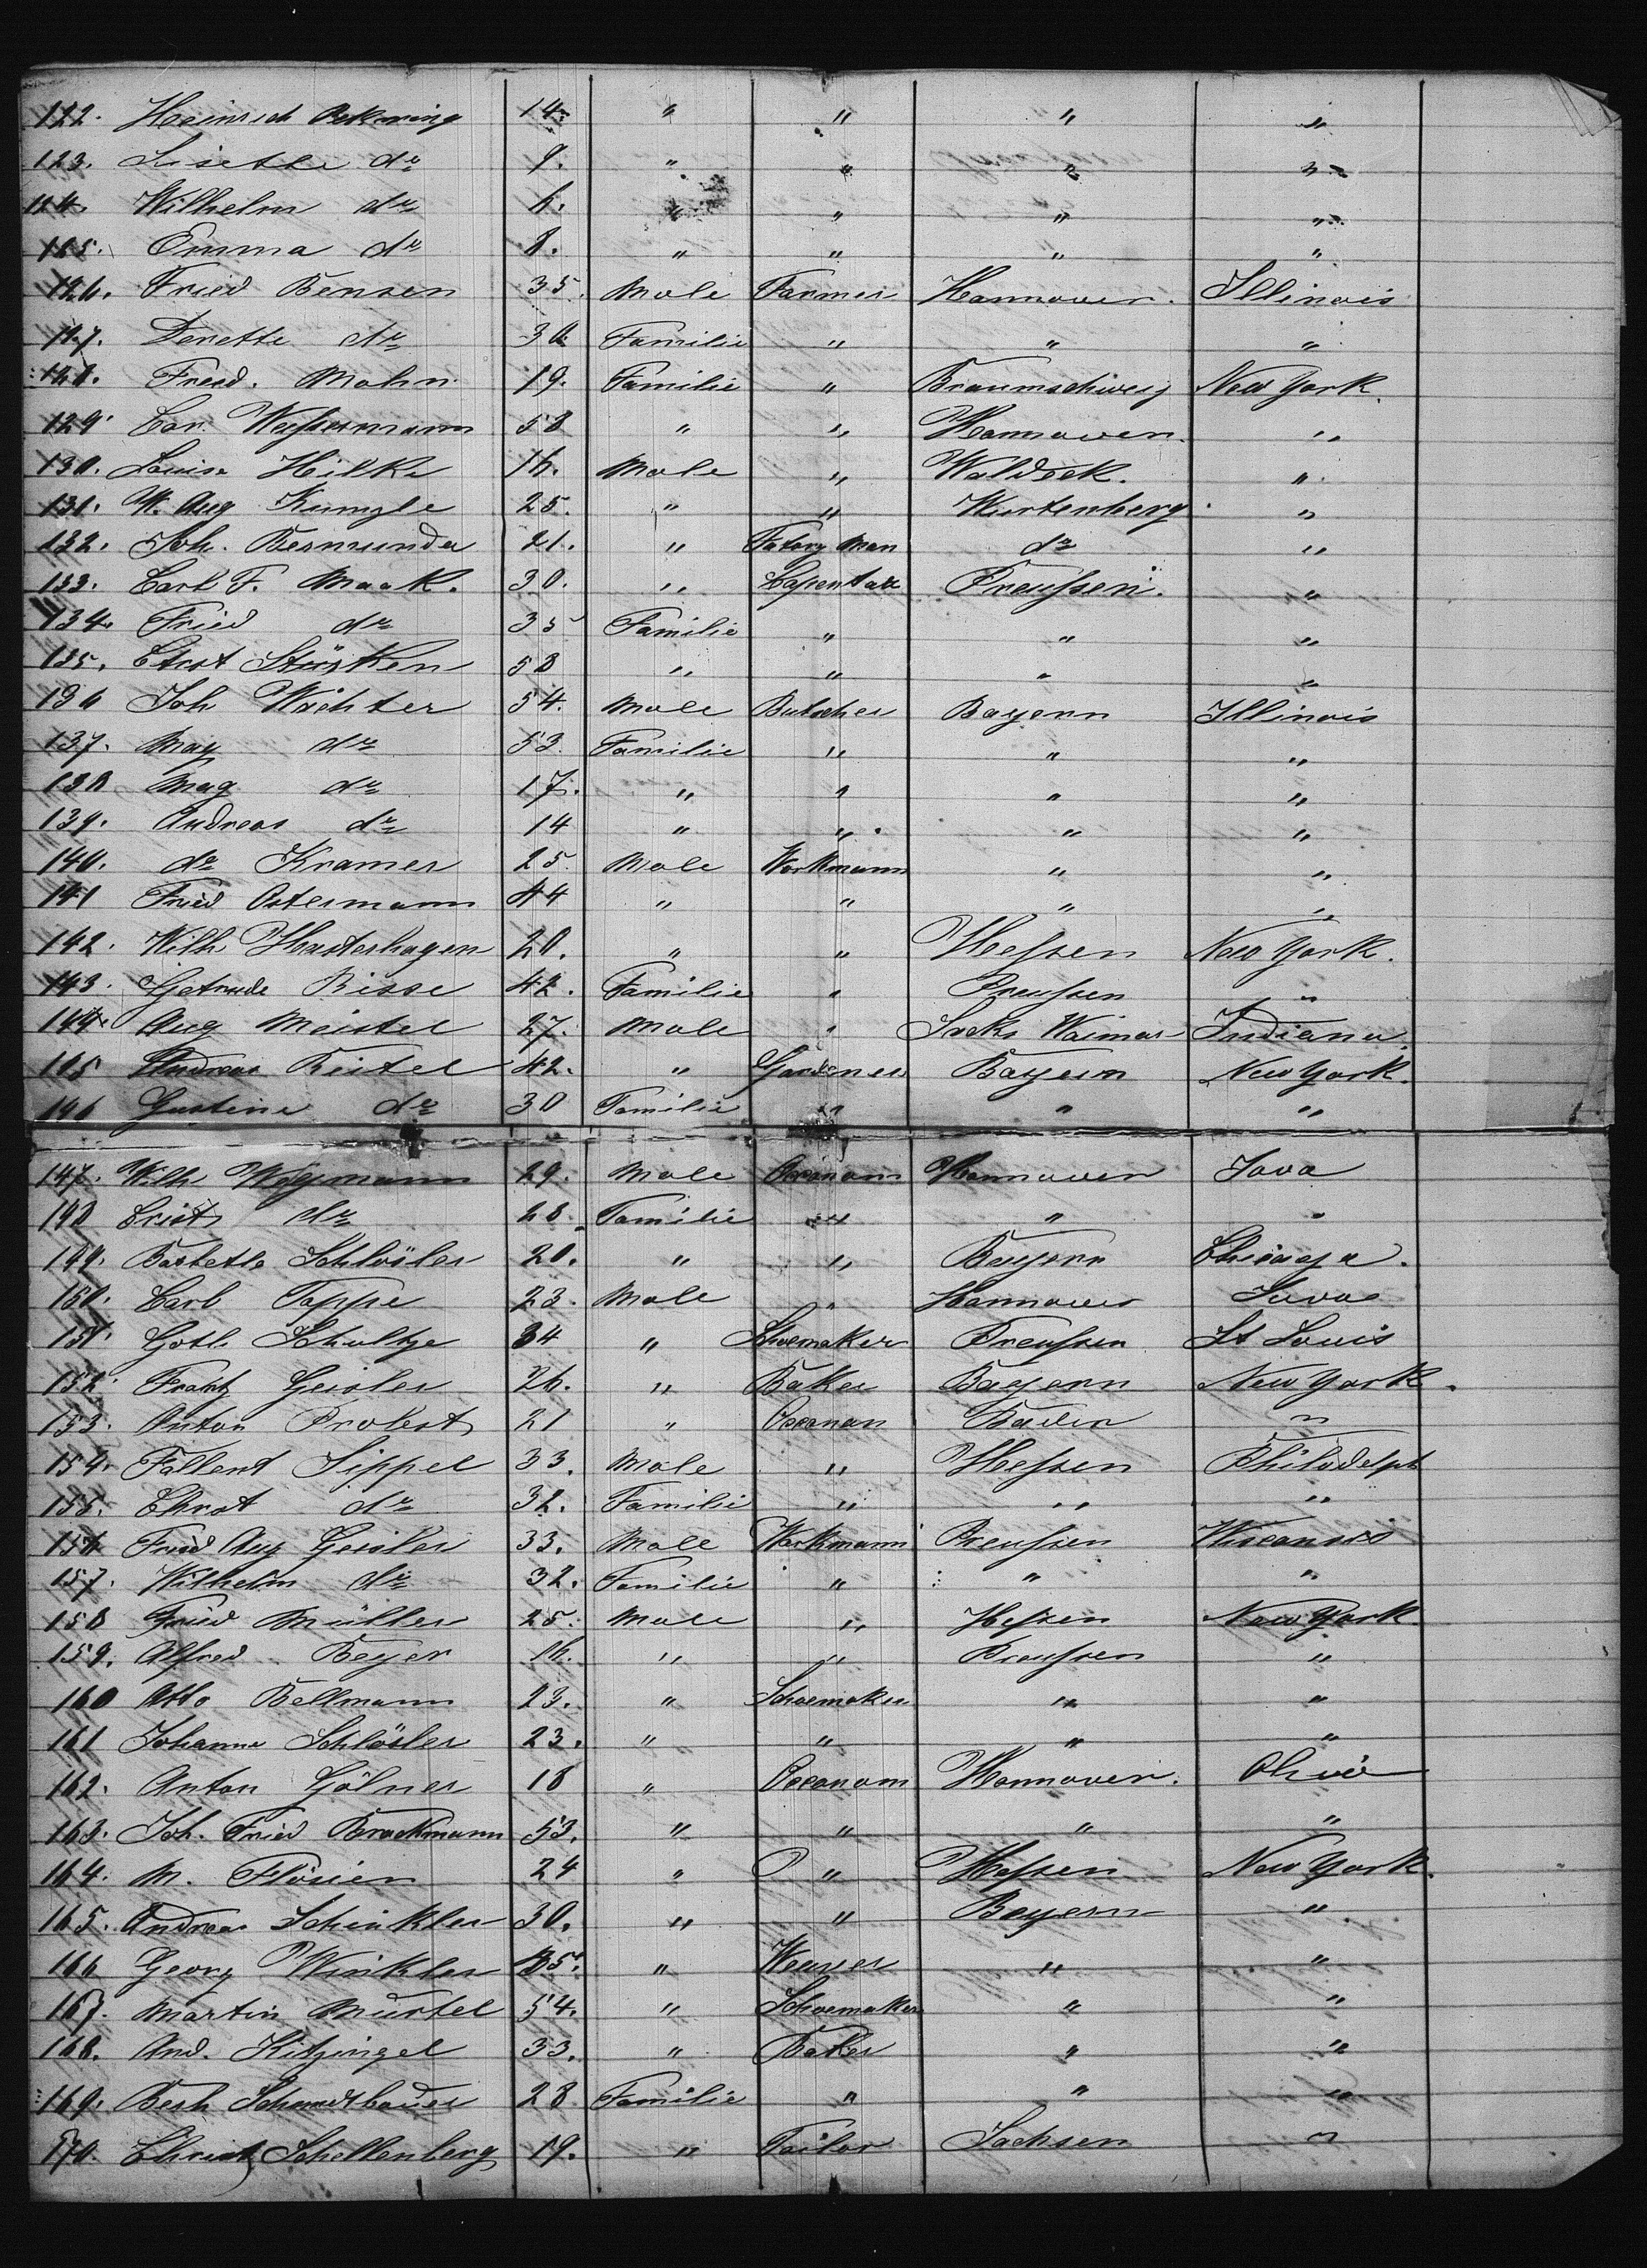 122. Heinrich Bekering 14. " " " "
123. Lisette do 9. " " " "
124. Wilhelm do 6. " " " "
125. Emma do 8. " " " "
126. Fried Bensen 35. Male Farmer Hannover. Illinois
127. Derette do 30 Familie " " "
128. Fried. Mohn 19. Familie " Braunschweig New York.
129. Car. Wessermann 58 " " Hannover. "
130. Louise Hilke 16. Male " Waldeck. "
131. W. Aug Kumzle 25. " " Wurtenberg "
132. Joh. Bermunder 21. " Fatory Man do "
133. Carl F. Maak. 30. " Capentar Preussen. "
134. Fried do 35 Familie " " "
135. Chrst Stürken 58 " " " "
136 Joh Wächter 54. Male Butcher Bayern Illinois
137. Mag do 53. Familie " " "
138 Mag do 17. " " " "
139. Andreas do 14 " " " "
140. do Kramer 25. Male Workmann " "
141 Fried Ostermann 44 " " " "
142. Wilh Hasterhagen 20. " " Hessen New York.
143. Getrude Risse 42. Familie " Preussen "
144. Aug Meistel 27. Male " Sachs Waimar Indiana.
145 Andreas Beitel 42. " Gardener Bayern New York.
146 Gustine do 30 Familie " " "
147. Wilh Wegmann 29. Male Oeconom Hannover Iova
148 Crist do 28. Familie " " "
149. Bastette Schlösler 20. " " Bayern Chicago.
150. Carl Tappe 23. Male " Hannover Iova
151. Gotl. Schultze 34 " Shoemaker Preussen St Louis
152. Frantz Geisler 26. " Baker Bayern New York.
153. Anton Probst 21 " Oeconom Baden "
154. Fallent Sippel 33. Male " Hessen Philadelph
155. Chrst do 32. Familie " " "
156 Fried Aug Geisler 33. Male Workmann Preussen Wisconsis
157. Wilhelm do 32. Familie " " "
158 Fried Müller 25. Male " Hessen New York.
159. Alfred Beyer 16. " " Preussen "
160 Otto Bellmann 23. " Schoemaker " "
161 Johanne Schlösler 23. " " " "
162. Anton Gölner 18 " Oeconom Hannover. Ohio
163. Joh. Fried Brackmann 53. " " " "
164. M. Flörien 24 " " Hessen New York.
165. Andreas Schinkler 30. " " Bayern "
166 Georg Winkler 35. " Weaver " "
167. Martin Murtel 54. " Schoemaker " "
168. And. Kitzingel 33. " Baker " "
169. Besh Schmidtbauer 28 Familie " " "
170. Christ Schellenberg 19. " Tailor Sachsen "